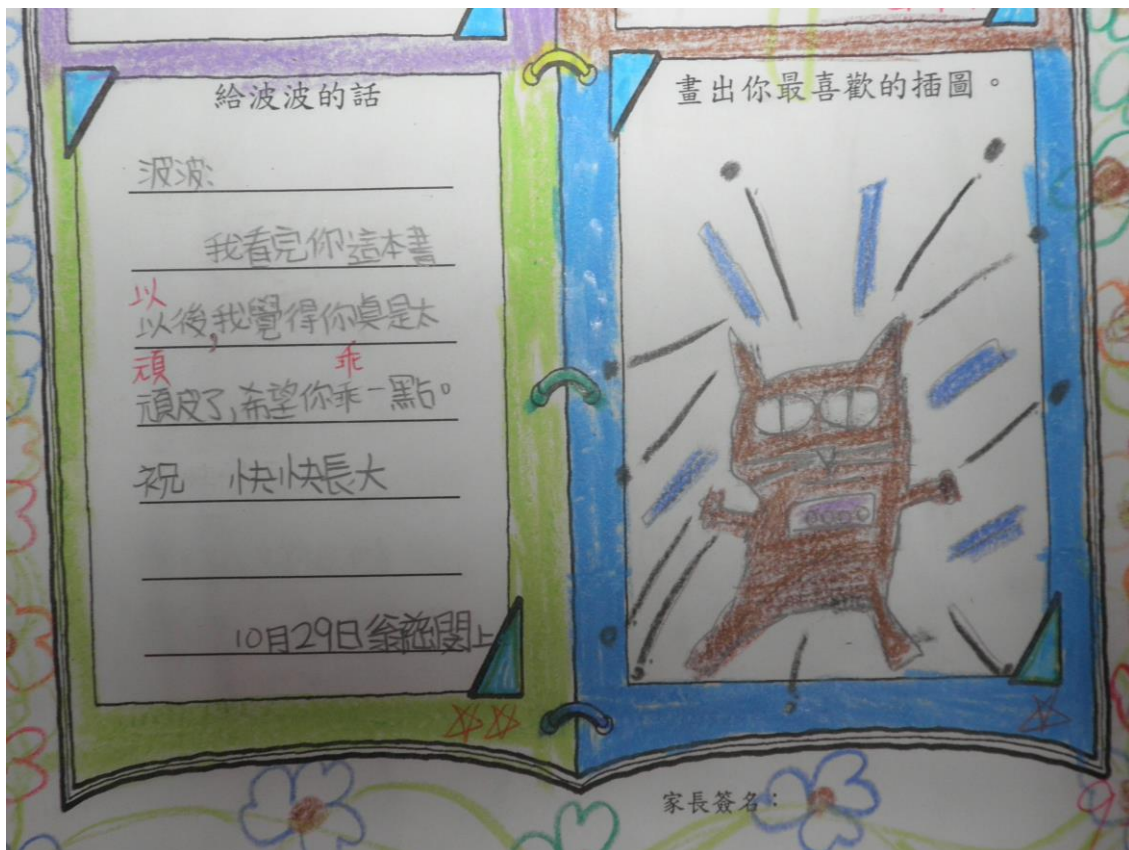 給波波的話
波波:
我看完你這本書
以
以後,我覺得你真是太
頑 乖
頑皮了,希望你乖一點。
祝 快快長大
10月29日翁
上
畫出你最喜歡的插圖。
家長簽名: